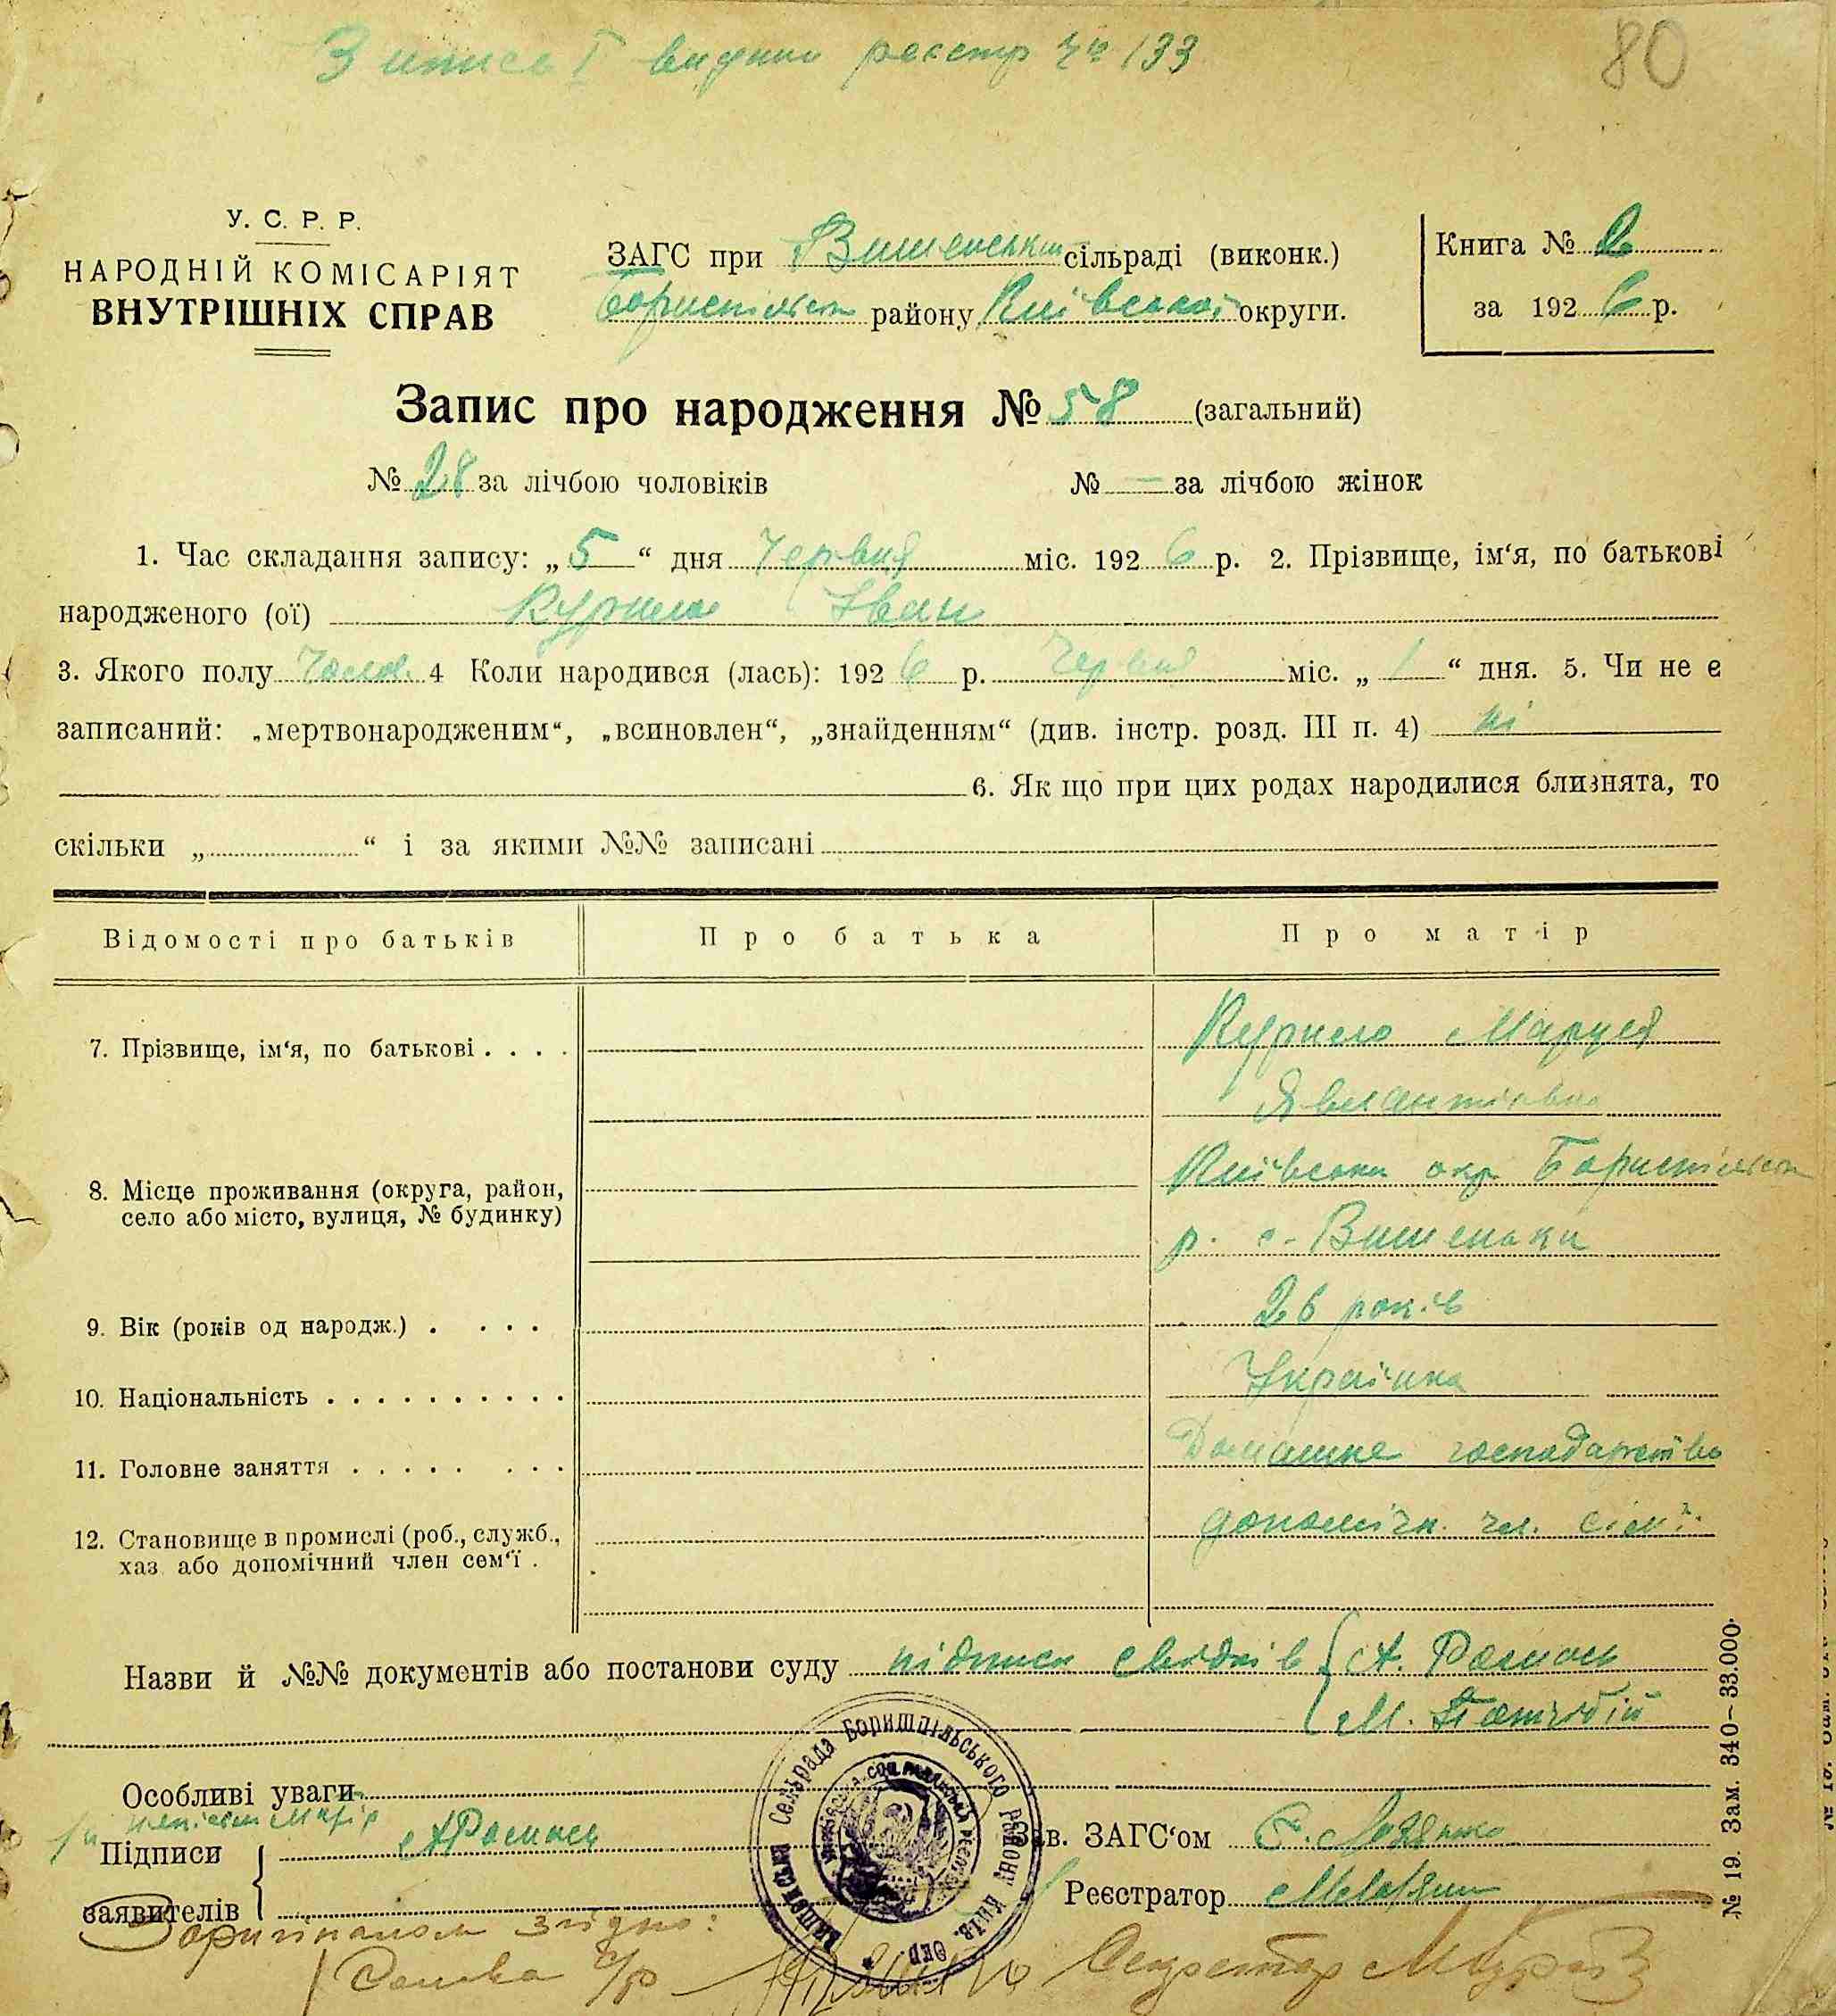 З 80
видано реєстр № 133
У. С. Р. Р.
НАРОДНІЙ КОМІСАРІЯТ
ВНУТРІШНІХ СПРАВ
ЗАГС при Вишенській сільраді (виконк.)
Бориспільськ району Київської округи.
Книга № 2
за 1926 р.
Запис про народження № 58 (загальний)
№ 28 за лічбою чоловіків № — за лічбою жінок
1. Час складання запису: „5“ дня Червня міс. 1926 р. 2. Прізвище, ім‘я, по батькові
народженого (ої) Курило Іван
3. Якого полу Чолов. 4 Коли народився (лась): 1926 р. Червня міс. „1“ дня. 5. Чи не є
записаний: „мертвонародженим“, „всиновлен“, „знайденням“ (див. інстр. розд. III п. 4) ні
6. Як що при цих родах народилися близнята, то
скільки „ “ і за якими №№ записані
Відомості про батьків Про батька Про матір
7. Прізвище, ім‘я, по батькові . . . . Курило Маруся
Київська окр. Бориспільськ
8. Місце проживання (округа, район,
село або місто, вулиця, № будинку)
р. с. Вишеньки
9. Вік (років од народж.) . . . . 26 років
10. Національність . . . . . . . . . . Українка
11. Головне заняття . . . . . . . . Домашне господарство
12. Становище в промислі (роб., служб.,
хаз. або допомічний член сем‘ї . допомічн. чл. сім‘ї.
Назви й №№ документів або постанови суду підписи свідків { А. Ромась
М.
Особливі уваги
Матір
Підписи
заявителів { А Ромась
Зав. ЗАГС‘ом
Реєстратор
Сельрада Бориспільського Району Київ. Окр.
З оригіналом згідно:
Голова С/Р Секретар
№ 19. Зам. 340—33.000.